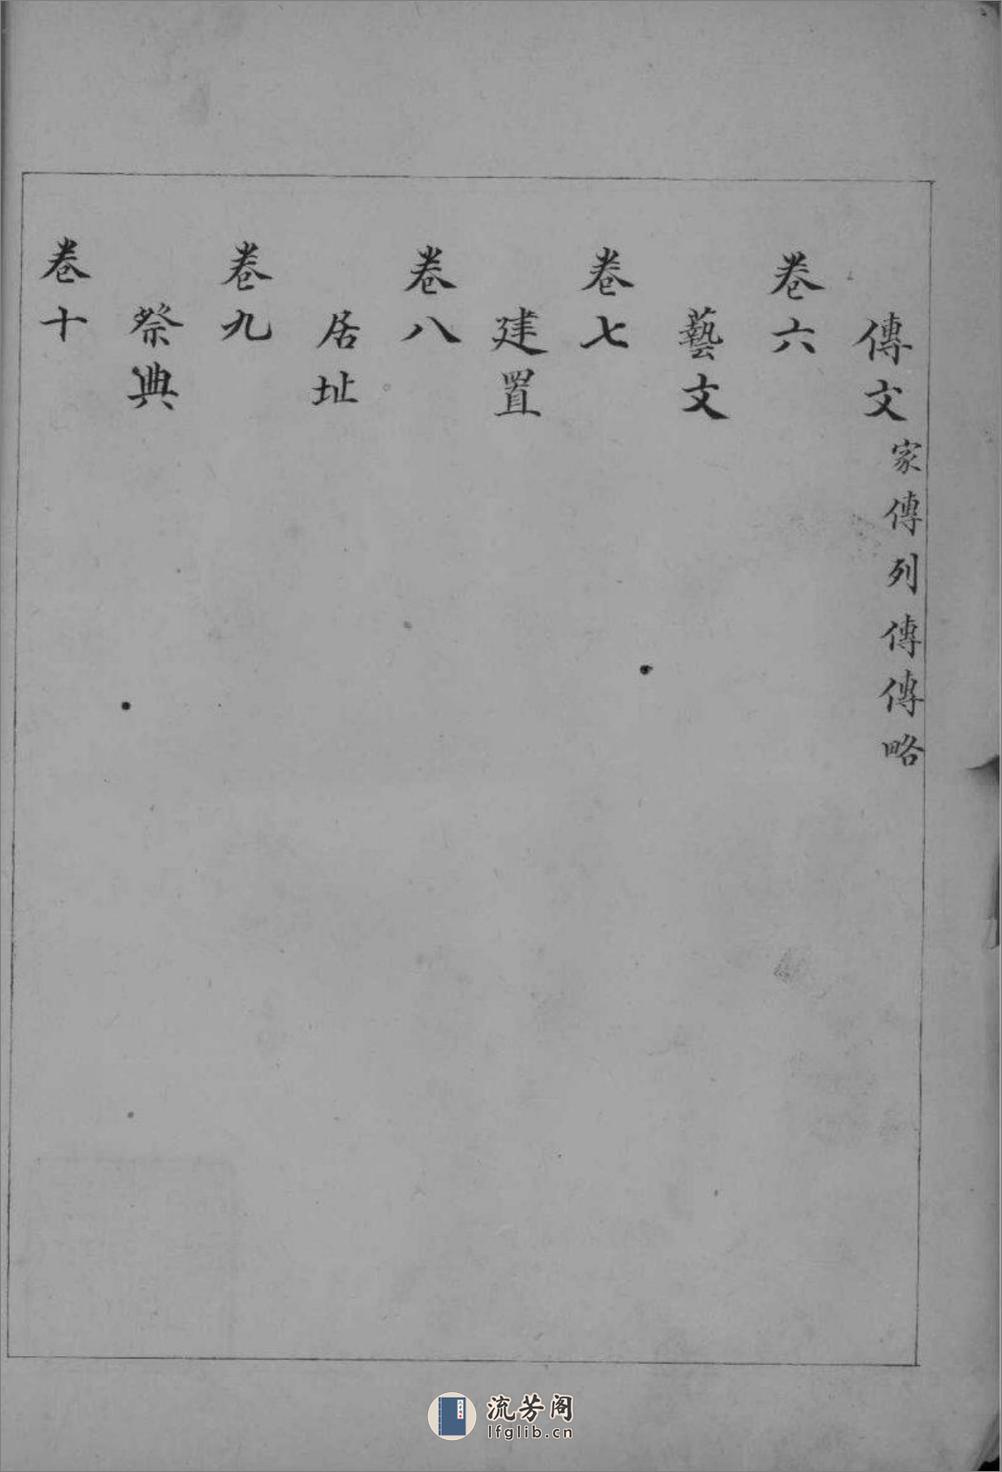 傳文 家傳列傳傳略
卷六
藝文
卷七
建置
卷八
居址
卷九
祭典
卷十
流芳阁
lfglib.cn